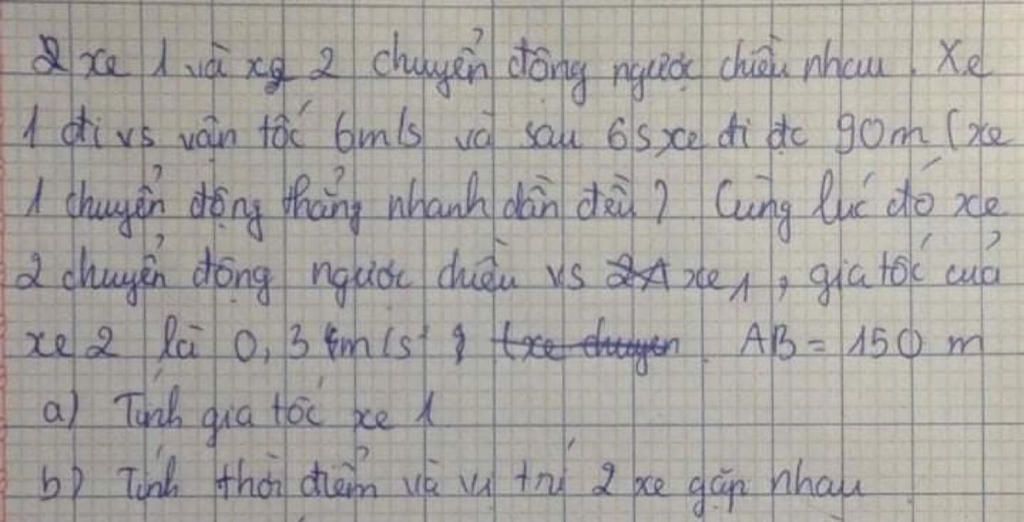 2 xe 1 và xe 2 chuyển động ngược chiều nhau. Xe
1 đi vs vận tốc 6m/s và sau 6s xe đi đc 90m (xe
1 chuyển động thẳng nhanh dần đều) Cùng lúc đó xe
2 chuyển động ngược chiều vs xe 1, gia tốc của
xe 2 là 0,3 m/s² AB = 150 m
a) Tính gia tốc xe 1
b) Tính thời điểm và vị trí 2 xe gặp nhau